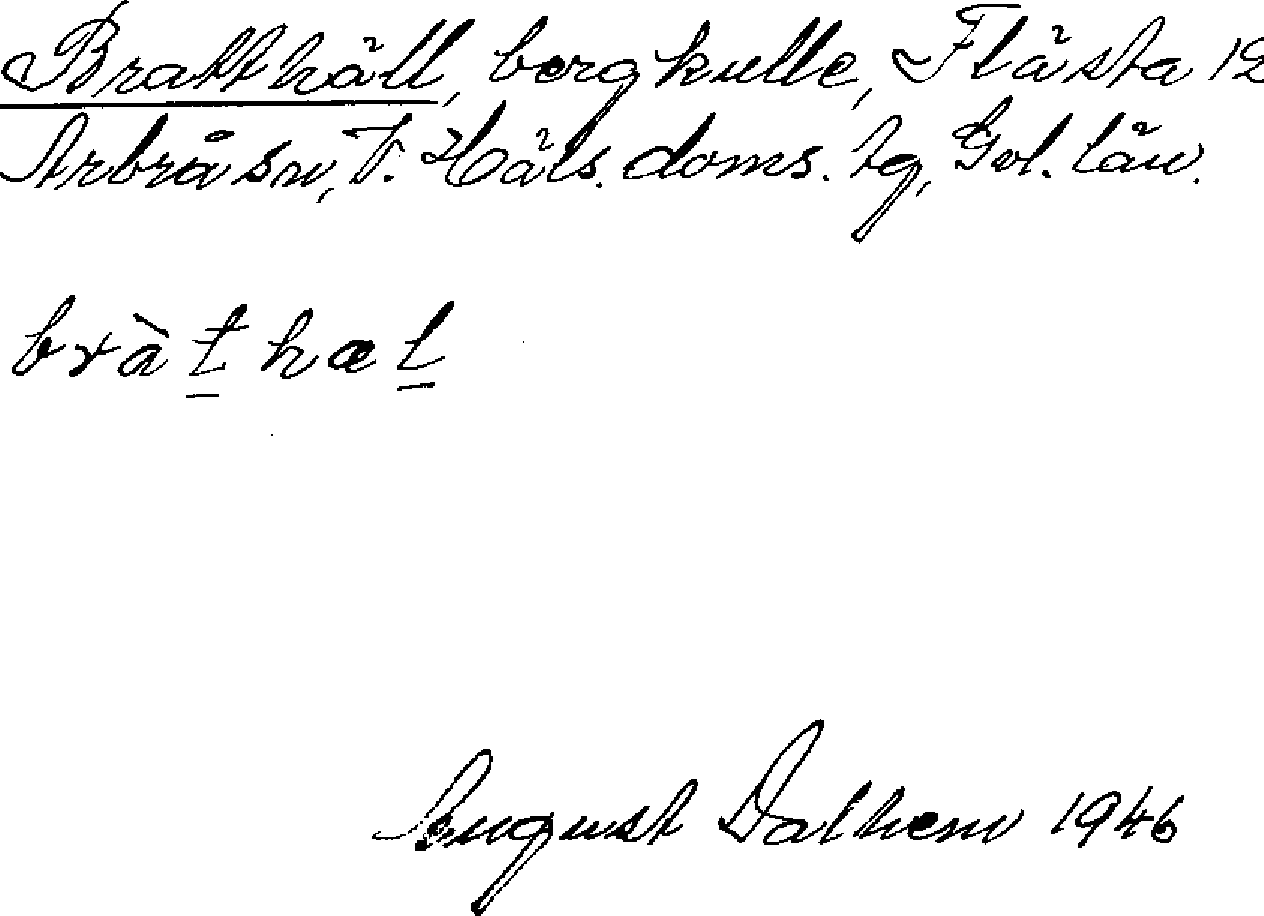 Bratthäll, bergkulle, Flästa 12
Arbrå sn, V. Häls. doms. tg, Gvl. län.
bràt̲ hæl̲
August Dalhem 1946